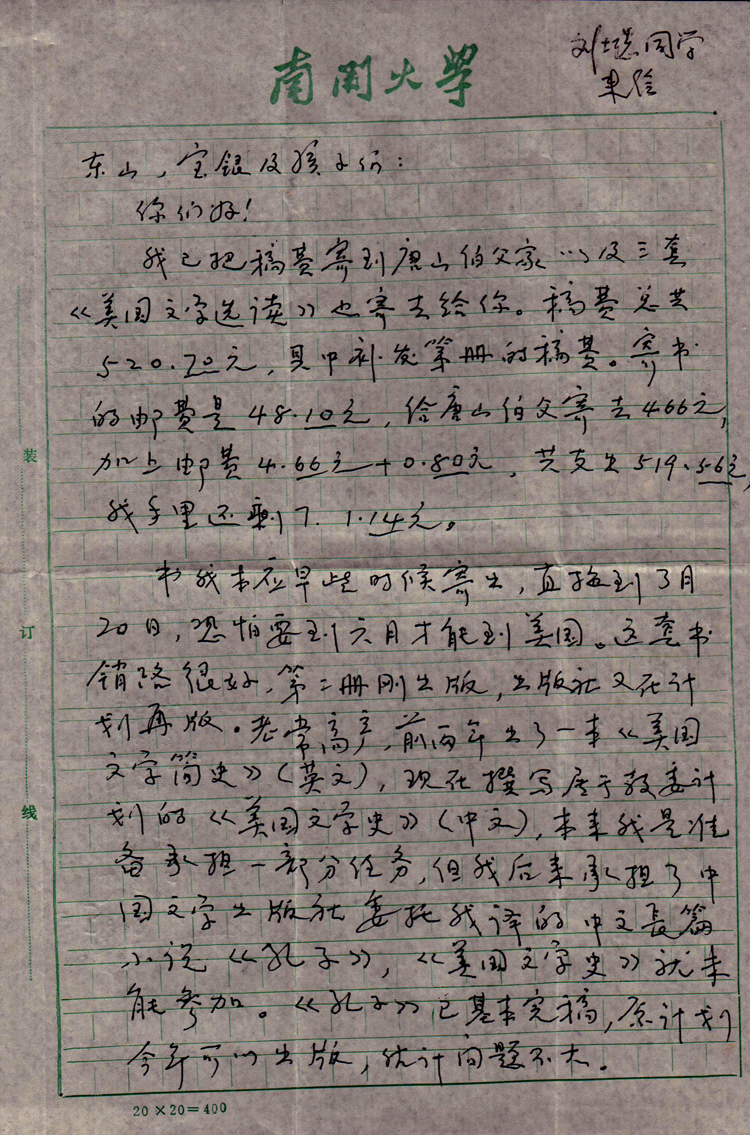 南開大學
刘士聪同学
来信
东山，宝银及孩子们：
你们好！
我已把稿费寄到唐山伯父家以及三套
《美国文学选读》也寄去给你。稿费总共
520.70元，其中补发第册的稿费。寄书
的邮费是48.10元，给唐山伯父寄去466元，
加上邮费4.66元+0.80元，共支出519.56元，
我手里还剩了1.14元。
书我本应早些时候寄出，直拖到3月
20日，恐怕要到六月才能到美国。这套书
销路很好，第二册刚出版，出版社又在计
划再版。老常高产，前两年出了一本《美国
文学简史》（英文），现在撰写属于教委计
划的《美国文学史》（中文），本来我是准
备承担一部分任务，但我后来承担了中
国文学出版社委托我译的中文长篇
小说《孔子》，《美国文学史》就未
能参加。《孔子》已基本完稿，原计划
今年可以出版，估计问题不大。
装
订
线
20×20=400